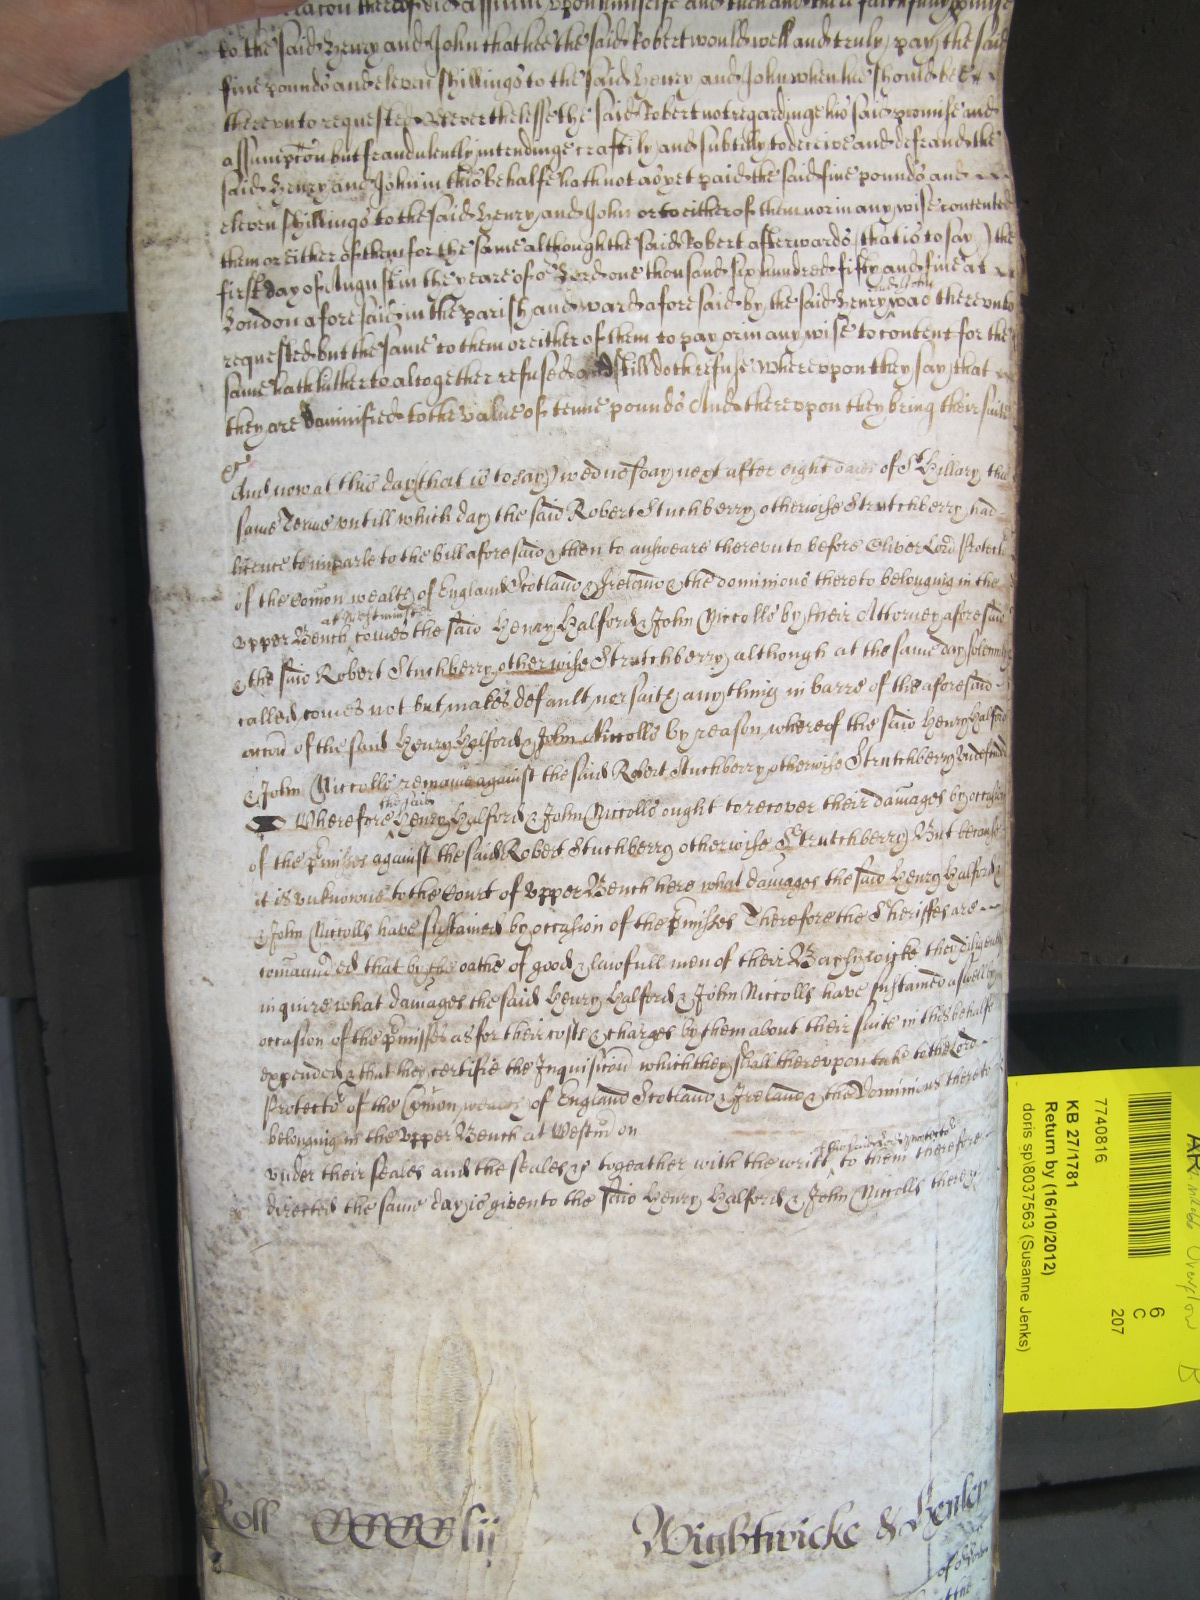 thereof did assume upon himselfe and then and there faithfully p̱mise
to the said Henry and John that hee the said Robert would well and truly pay the said
five pounds and eleven shillings to the said Henry and John when hee should bee
thereunto requested Neverthelesse the said Robert not regardinge his said promise and
assumpc̃on but fraudulently intendinge craftily and subtilly to deceive and defraud the
said Henry and John in this behalfe hath not as yet paid the said five pounds and
eleven shillings to the said Henry and John or to either of them nor in any wise contented
them or either of them for the same although the said Robert afterwards (that is to say) the
first day of August in the yeare of oʳ Lord one thousand six hundred fifty and five at
London aforesaid in the parish and ward aforesaid by the said Henry and John was thereunto
requested but the same to them or either of them to pay or in any wise to content for the
same hath hitherto altogether refused and still doth refuse Whereupon they say that
they are damnified to the value of tenne pounds And thereupon they bring their suite
&c
And now at this day (that is to say) wednesday next after eight daies of Sᵗ Hillary this
same Terme untill which day the said Robert Stuchberry otherwise Strutchberry had
licence to imparle to the bill aforesaid & then to answeare thereunto before Oliver Lord Protectoʳ
of the com̃on wealth of England Scotland & Ireland & the dominions thereto belonging in the
upper Bench at Westminster comes the said Henry Halford & John Niccolls by their Attorney aforesaid
& the said Robert Stuchberry otherwise Strutchberry although at the same day solemnly
called comes not but makes default nor saith any thing in barre of the aforesaid
acc̃on of the said Henry Halford & John Niccolls by reason whereof the said Henry Halford
& John Niccolls remaine against the said Robert Stuchberry otherwise Strutchberry undefended
Wherefore the said Henry Halford & John Niccolls ought to recover their damages by occasion
of the p̱misses against the said Robert Stuchberry otherwise Strutchberry But because
it is unknowne to the Court of upper Bench here what damages the said Henry Halford
& John Niccolls have sustained by occasion of the p̱misses Therefore the Sheriffes are
com̃aunded that by the oathe of good & lawfull men of their Baylywicke they diligently
inquire what damages the said Henry Halford & John Niccolls have sustained aswell by
occasion of the p̱misses as for their costs & charges by them about their suite in this behalfe
expended & that they certifie the Inquisic̃on which they shall thereupon take to the Lord
Protectoʳ of the Com̃on wealth of England Scotland & Ireland & the Dominions thereto
belonging in the upper Bench at Westm̃ on
under their seales and the seales &c togeather with the writt of the said Lord Protectoʳ to them therefore
directed the same day is given to the said Henry Halford & John Niccolls there &c
Roll CCCCClii Wightwicke & Henley
7740816
KB 27/1781
Return by (16/10/2012)
doris sp\8037563 (Susanne Jenks)
6
C
207